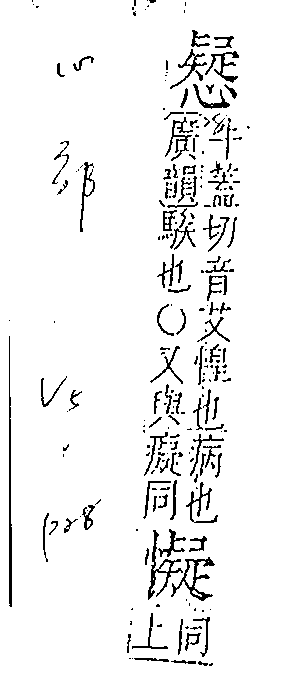 牛蓋切音艾惶也病也
廣韻騃也○又與癡同
懝
同
上
心部
V5. p28